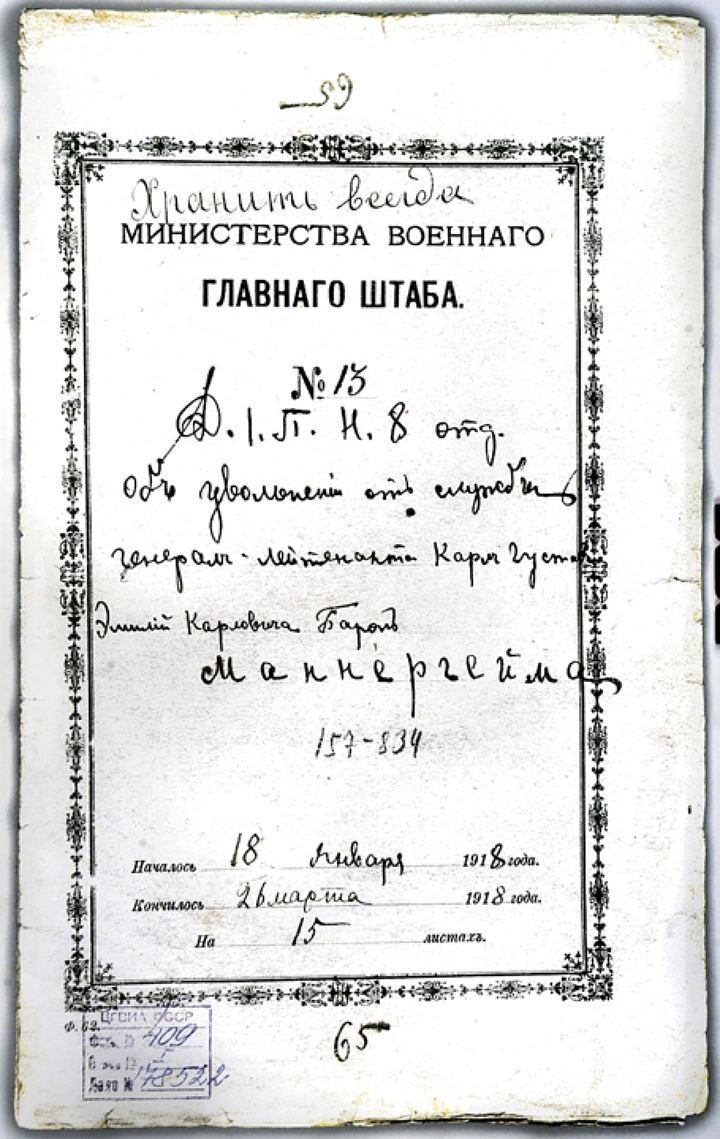 59
Хранить всегда
МИНИСТЕРСТВА ВОЕННАГО
ГЛАВНАГО ШТАБА.
№ 13
Д. I. П. Н. 8 отд.
Объ увольнении отъ службы
генералъ-лейтенанта Карлъ Густавъ
Эмилій Карловича Баронъ
Маннергейма
157-834
Началось 18 января 1918 года.
Кончилось 26 марта 1918 года.
На 15 листахъ.
Ф. 62.
65
ЦГВИА СССР
409
1
Дело № 178522